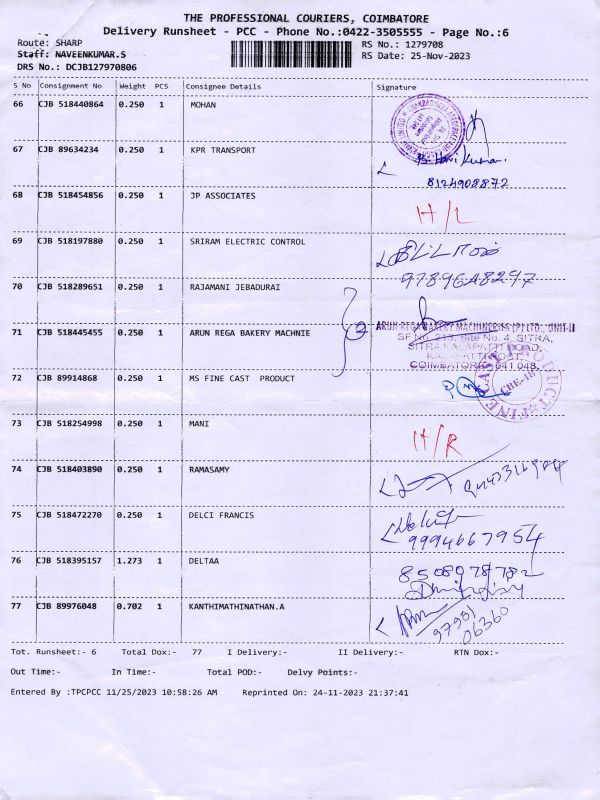 THE PROFESSIONAL COURIERS, COIMBATORE
Delivery Runsheet - PCC - Phone No.:0422-3505555 - Page No.:6
Route: SHARP
RS No.: 1279708
Staff: NAVEENKUMAR.S
RS Date: 25-Nov-2023
DRS No.: DCJB127970806
S No Consignment No Weight PCS Consignee Details Signature
66 CJB 518440864 0.250 1 MOHAN
67 CJB 89634234 0.250 1 KPR TRANSPORT
B. Hari Kumar.
8124908872
68 CJB 518454856 0.250 1 JP ASSOCIATES H/L
69 CJB 518197880 0.250 1 SRIRAM ELECTRIC CONTROL
9789648247
70 CJB 518289651 0.250 1 RAJAMANI JEBADURAI
71 CJB 518445455 0.250 1 ARUN REGA BAKERY MACHNIE
ARUN REGA BAKERY MACHINERIES (P) LTD., UNIT-II
SF No. 213, Site No. 4, SITRA,
SITRA KALAPATTI ROAD,
KALAPATTI POST,
COIMBATORE-641 048.
72 CJB 89914868 0.250 1 MS FINE CAST PRODUCT
CBE-48
73 CJB 518254998 0.250 1 MANI H/R
74 CJB 518403890 0.250 1 RAMASAMY
75 CJB 518472270 0.250 1 DELCI FRANCIS
9994667954
76 CJB 518395157 1.273 1 DELTAA
8508978782
77 CJB 89976048 0.702 1 KANTHIMATHINATHAN.A
97951
06360
Tot. Runsheet:- 6 Total Dox:- 77 I Delivery:- II Delivery:- RTN Dox:-
Out Time:- In Time:- Total POD:- Delvy Points:-
Entered By :TPCPCC 11/25/2023 10:58:26 AM Reprinted On: 24-11-2023 21:37:41